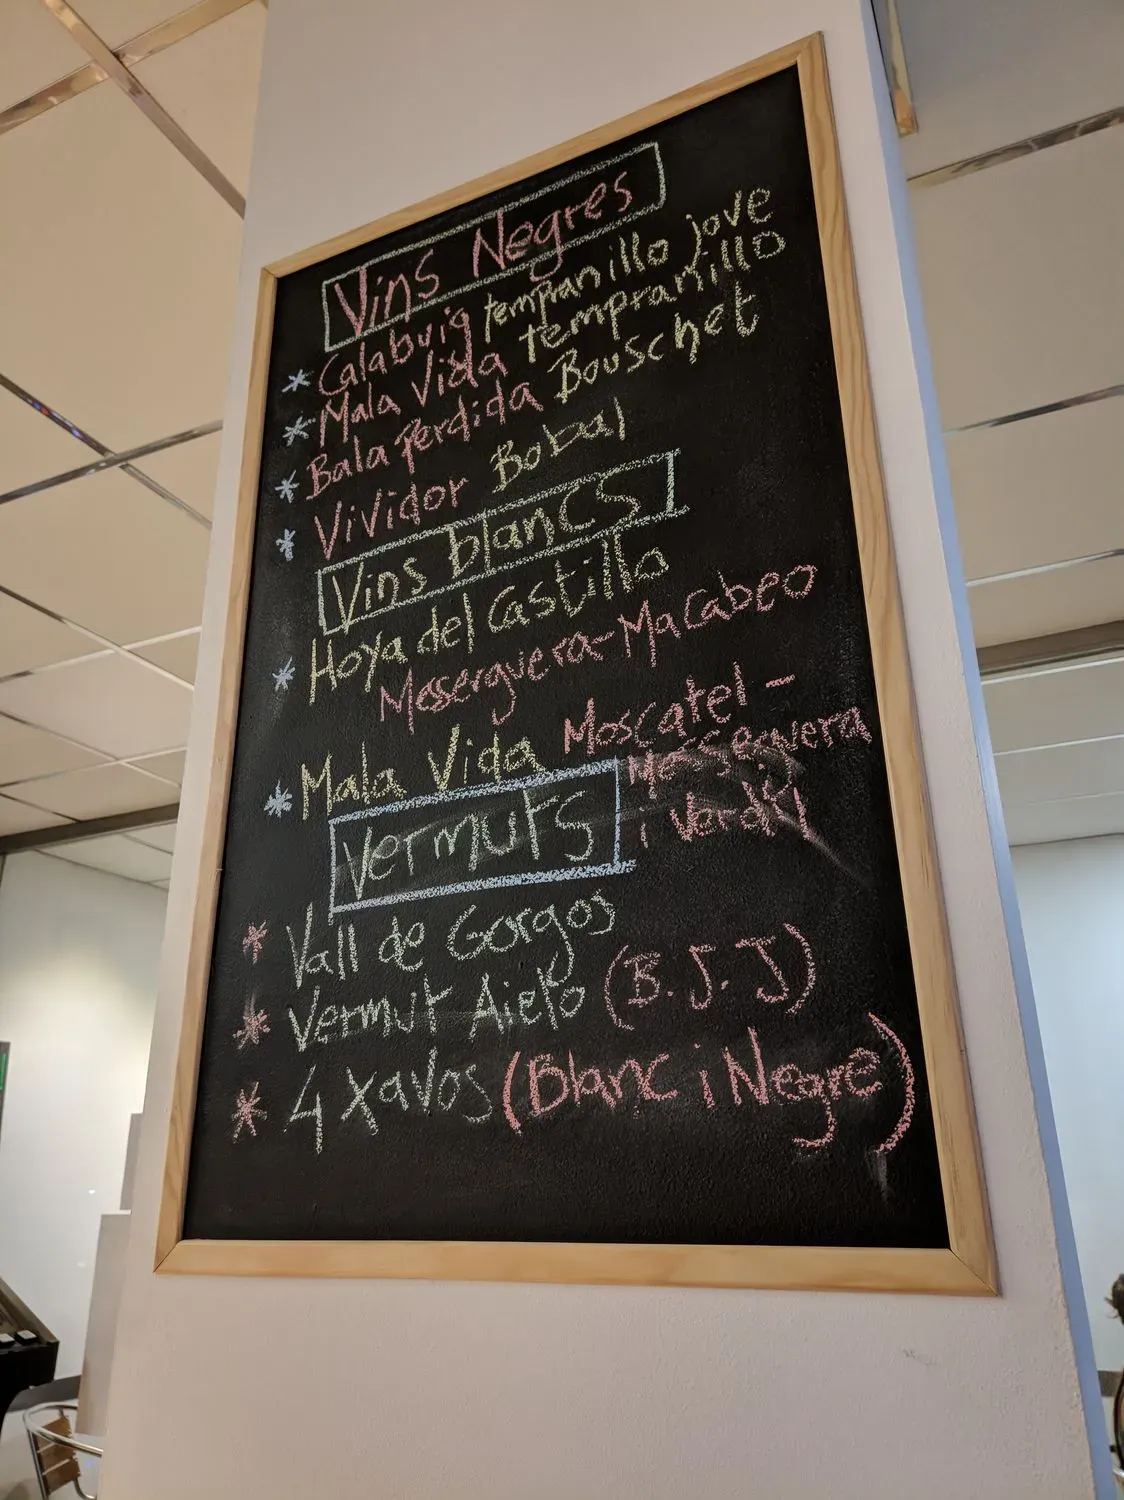 Vins Negres
* Calabuig tempranillo jove
* Mala Vida tempranillo
* Bala Perdida Bouschet
* Vividor Bobal
Vins blancs
* Hoya del Castillo
Messerguera-Macabeo
* Mala Vida Moscatel-
Messeguera
i Verdil
Vermuts
* Vall de Gorgos
* Vermut Aielo (B. J. J)
* 4 Xavos (Blanc i Negre)